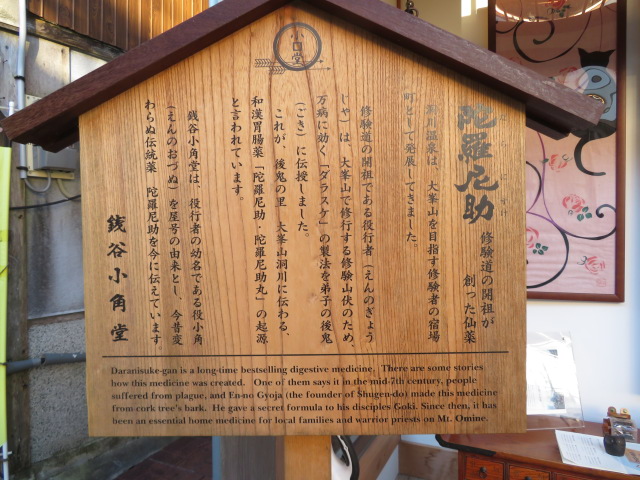 小角堂
陀羅尼助
修験道の開祖が
創った仙薬
洞川温泉は、大峯山を目指す修験者の宿場
町として発展してきました。
修験道の開祖である役行者（えんのぎょう
じゃ）は、大峯山で修行する修験山伏のため、
万病に効く「ダラスケ」の製法を弟子の後鬼
（ごき）に伝授しました。
これが、後鬼の里　大峯山洞川に伝わる、
和漢胃腸薬「陀羅尼助・陀羅尼助丸」の起源
と言われています。
銭谷小角堂は、役行者の幼名である役小角
（えんのおづぬ）を屋号の由来とし、今昔変
わらぬ伝統薬　陀羅尼助を今に伝えています。
銭谷小角堂
Daranisuke-gan is a long-time bestselling digestive medicine. There are some stories
how this medicine was created. One of them says it in the mid-7th century, people
suffered from plague, and En-no Gyoja (the founder of Shugen-do) made this medicine
from cork tree's bark. He gave a secret formula to his disciples Goki. Since then, it has
been an essential home medicine for local families and warrior priests on Mt. Omine.